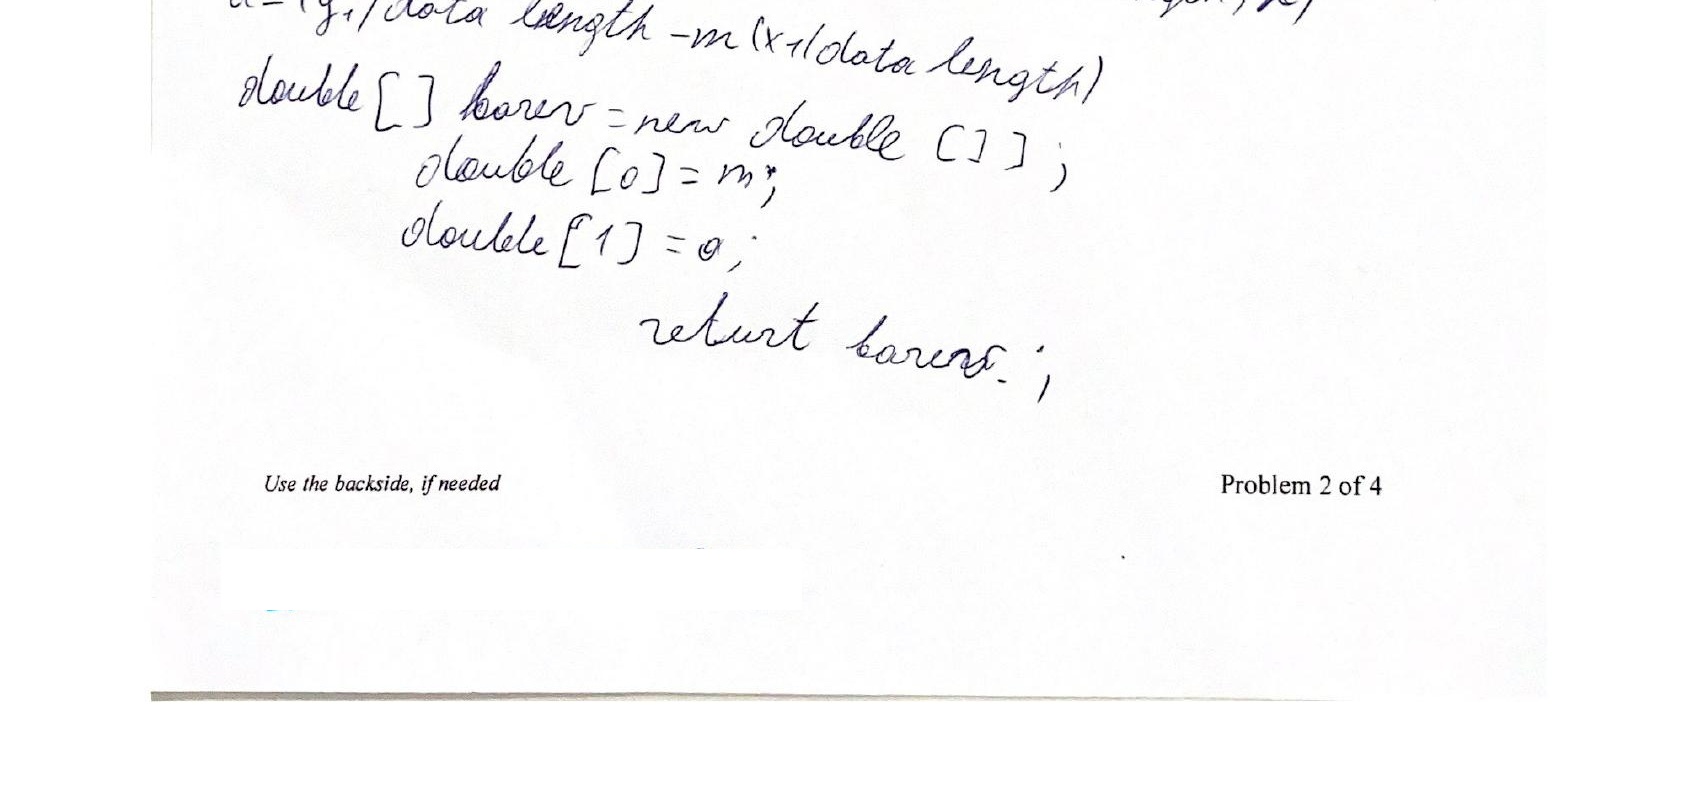 data length -m(x1/data length)
double[] = new double []];
double [0] = m;
double [1] = 0;
returt
Use the backside, if needed
Problem 2 of 4